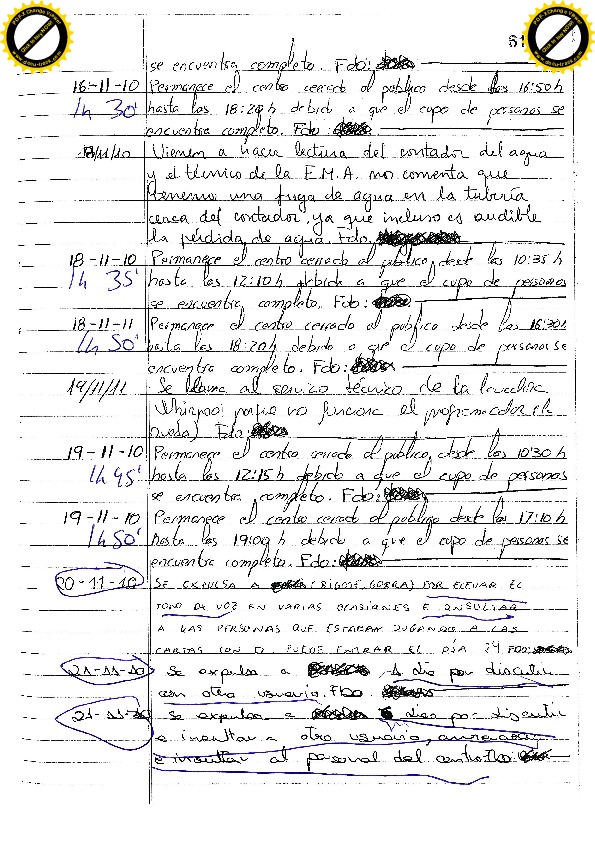 61
se encuentra completo. Fdo:
16-11-10 Permanece el centro cerrado al público desde las 16:50 h
1h 30' hasta las 18:20 h debido a que el cupo de personas se
encuentra completo. Fdo:
/11/10 Vienen a hacer lectura del contador del agua
y el técnico de la E.M.A. nos comenta que
tenemos una fuga de agua en la tubería
cerca del contador, ya que incluso es audible
la pérdida de agua. Fdo.
18-11-10 Permanece el centro cerrado al público, desde las 10:35 h
1h 35' hasta las 12:10 h debido a que el cupo de personas
se encuentra completo. Fdo:
18-11-11 Permanece el centro cerrado al público desde las 16:30 h
1h 50' hasta las 18:20 h debido a que el cupo de personas se
encuentra completo. Fdo:
19/11/11 Se llama al servicio técnico de la lavadora
Whirpool porque no funciona el programador
rueda) Fdo:
19-11-10 Permanece el centro cerrado al público, desde las 10:30 h
1h 45' hasta las 12:15 h debido a que el cupo de personas
se encuentra completo. Fdo:
19-11-10 Permanece el centro cerrado al público desde las 17:10 h
1h 50' hasta las 19:00 h debido a que el cupo de personas se
encuentra completo. Fdo:
20-11-10 SE EXPULSA A (BIGOTE, GORRA) POR ELEVAR EL
TONO DE VOZ EN VARIAS OCASIONES E INSULTAR
A LAS PERSONAS QUE ESTABAN JUGANDO A LAS
CARTAS CON EL PUEDE ENTRAR EL DÍA 24 FDO:
21-11-10 Se expulsa a 1 día por discutir
con otro usuario. Fdo.
21-11-10 Se expulsa a días por discutir
e insultar a otro usuario, amenazar
e insultar al personal del centro. Fdo: